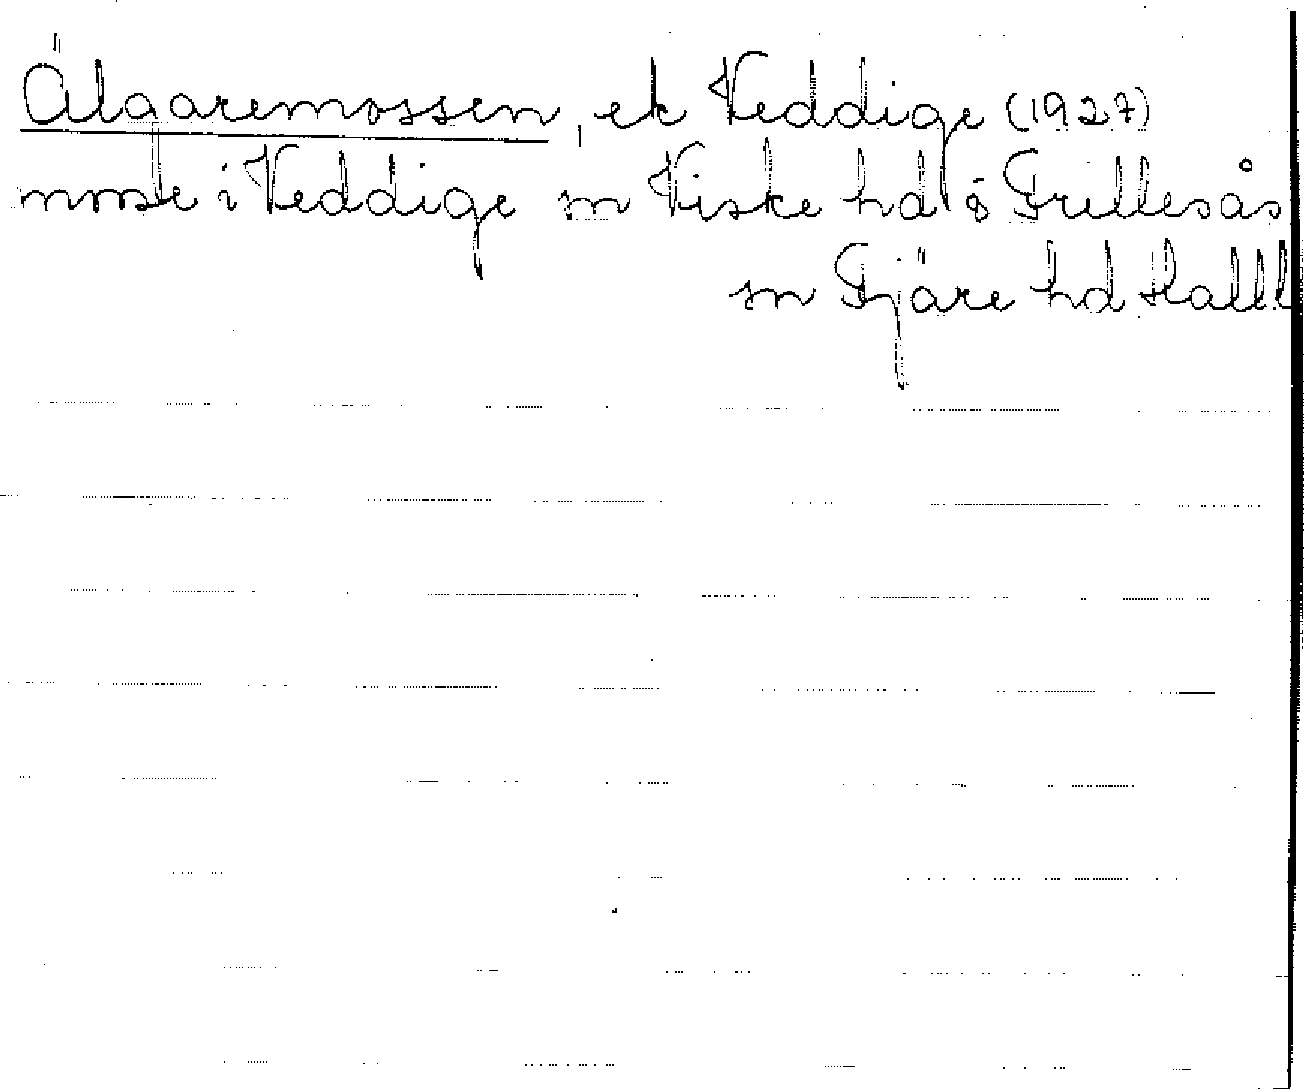 Älgaremossen, ek Veddige (1927)
mosse i Veddige sn Viske hd o Frillesås
sn Fjäre hd Halll